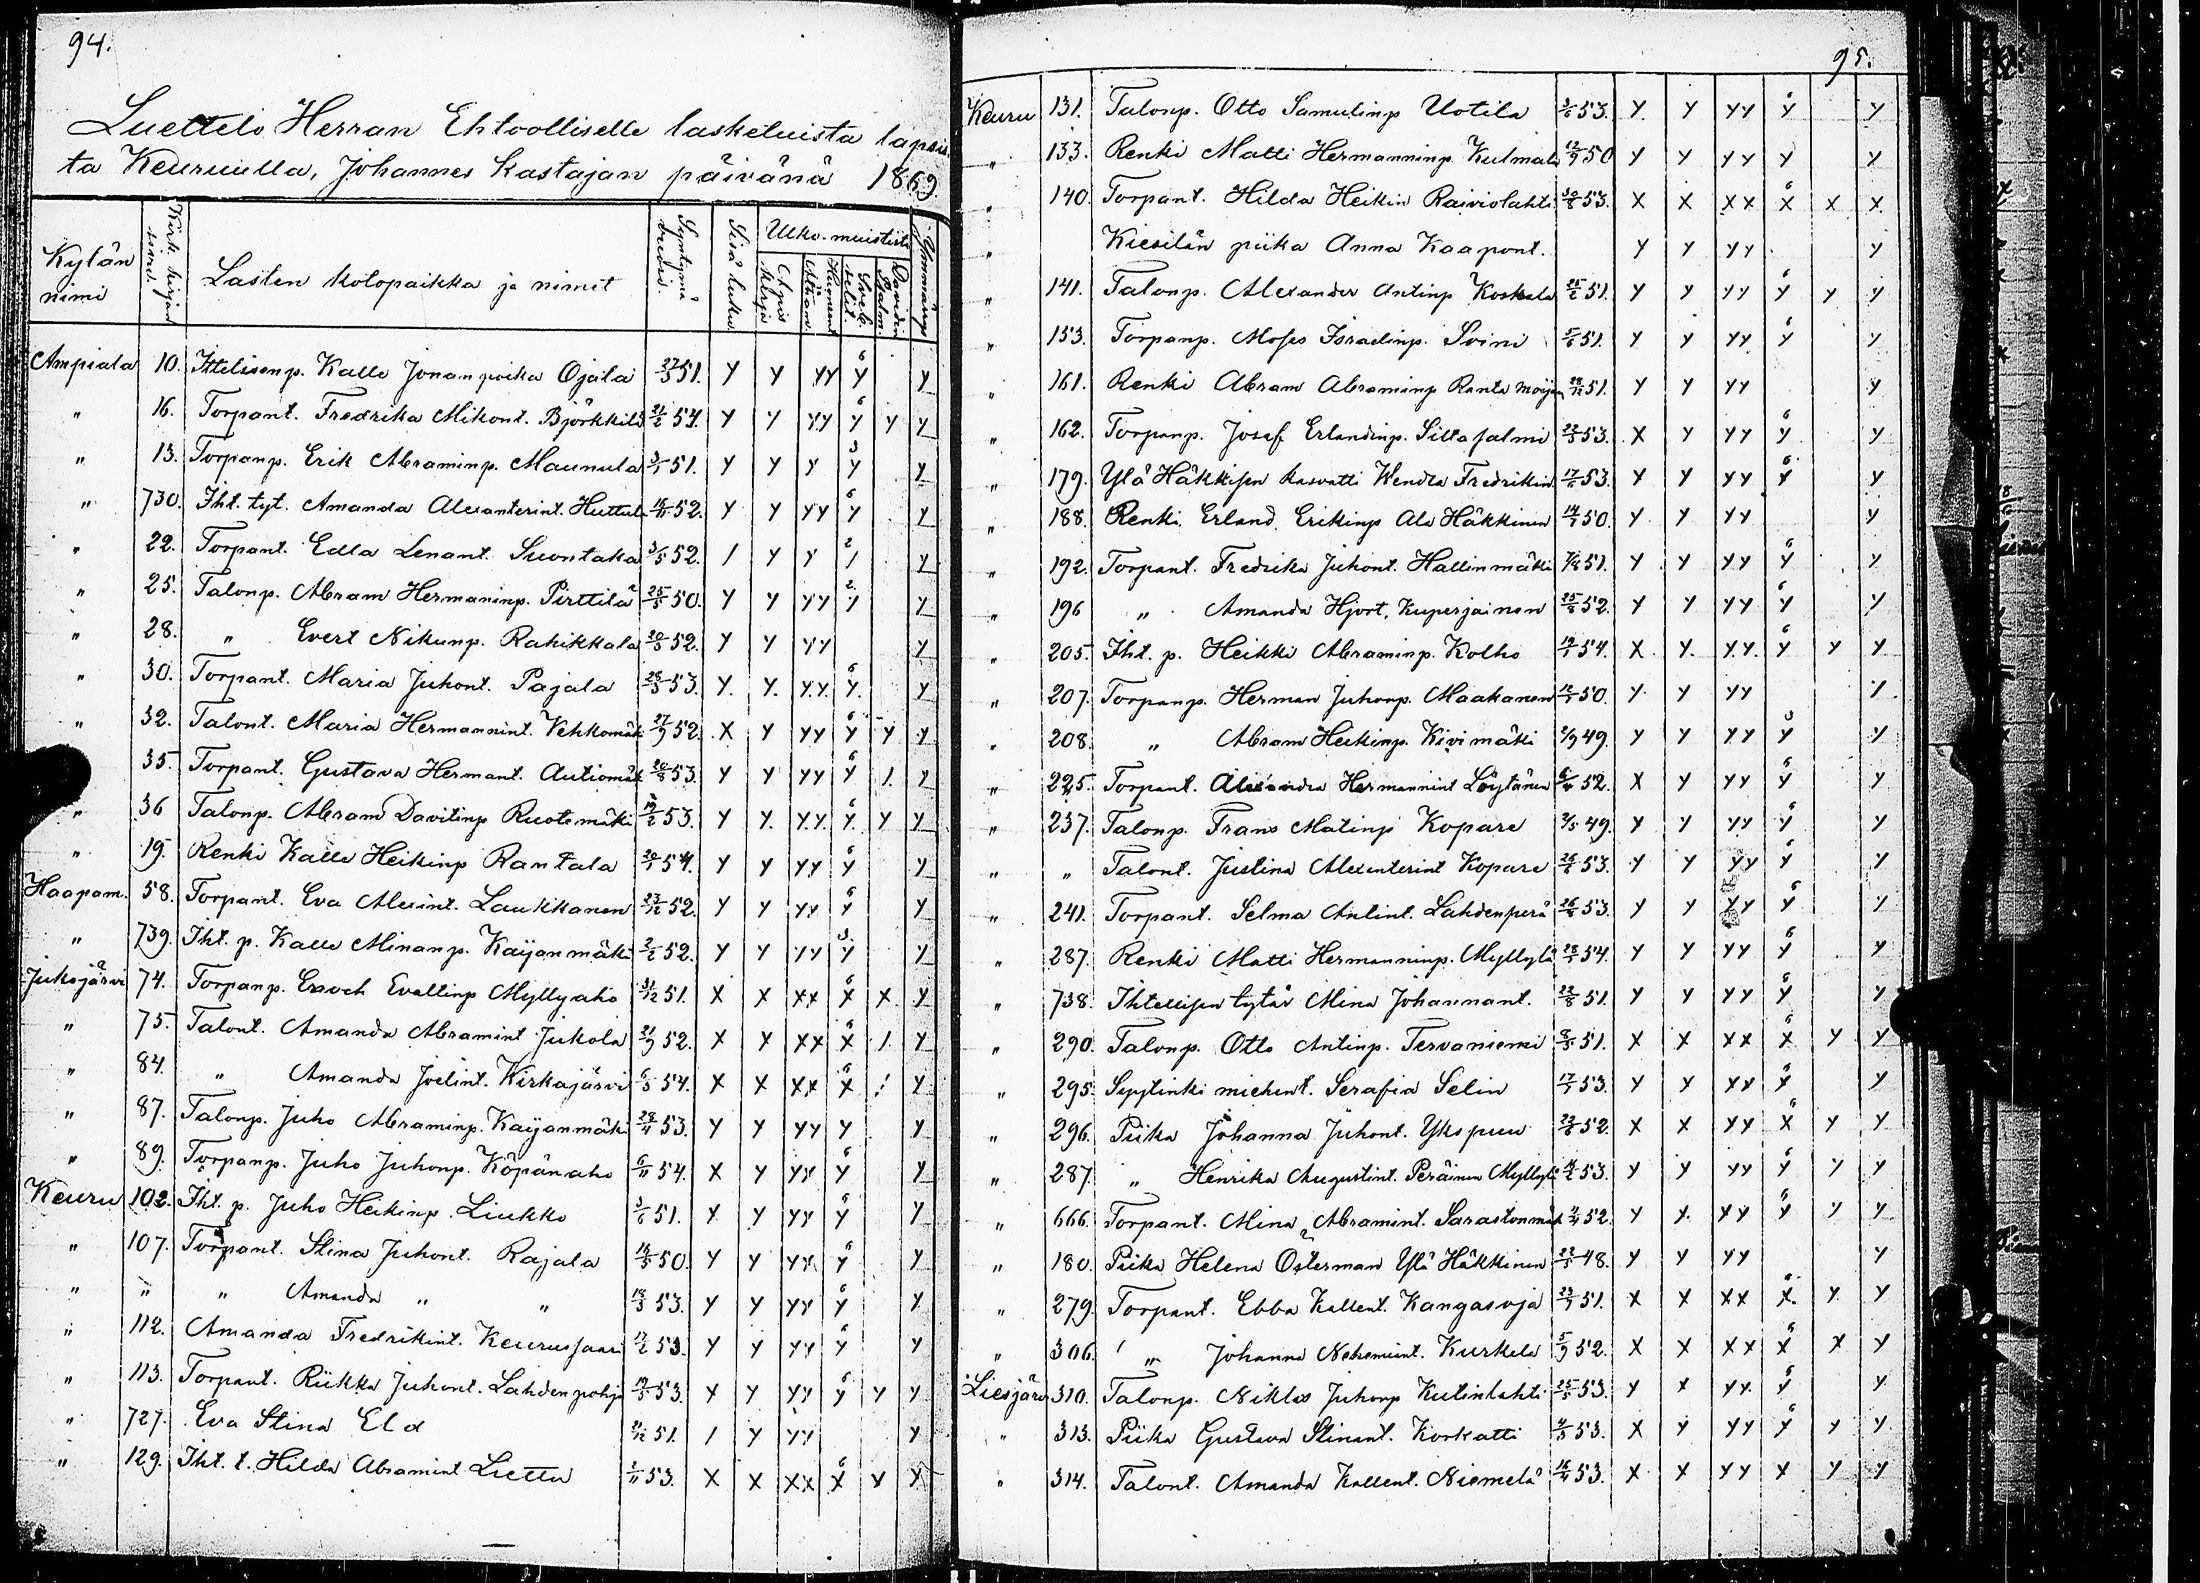 94.
Luettelo Herran Ehtoolliselle lasketuista lapsis-
ta Keuruulla, Johannes Kastajan päivänä 1869.
Kylän nimi | Kirk. kirjan sivu | Lasten kotopaikka ja nimet | Syntymä vuosi. | Sisä luku | Ulko-muistista | Ymmärrys
Ampiala 10. Ittelisenp. Kalle Jonanpoika Ojala 51. y y yy y 6 y
" 16. Torpant. Fredrika Mikont. Björkkilä 54. y y yy y 6 y y
" 13. Torpanp. Erik Abraminp. Maunula 51. y y y y 3 y
" 730. Iht. tyt. Amanda Alexanterint. Huttula 52. y y yy y 6 y
" 22. Torpant. Edla Lenant. Suontaka 3/5 52. / y y / 2 y
" 25. Talonp. Abram Hermaninp. Pirttilä 25/5 50. y y yy y 2 y
" 28. " Evert Nikunp. Rahikkala 52. y y yy y
" 30. Torpant. Maria Juhont. Pajala 53. y. y. y.y. y. 6 y
" 32. Talont. Maria Hermannint. Vehkomäki 27/9 52. x y yy y 6 y y
" 35. Torpant. Gustava Hermant. Autiomäk 20/8 53. y y yy y 6 / y
" 36 Talonp. Abram Davitinp Ruotemäki 53. y y. y.y. y. 6 y y
" 19. Renki Kalle Heikinp Rantala 54. y y yy y 6 y
Haapam. 58. Torpant. Eva Alexint. Laukkanen 52. y y yy y 6 y
" 739. Iht. p. Kalle Minanp. Kaijanmäki 52. y y yy y 3 y
Jukojärvi 74. Torpanp. Enoch Evallinp Myllyaho 31/12 51. x x xx x 6 x. y
" 75. Talont. Amanda Abramint Jukola 21/9 52. x y xx x 6 / y
" 84. " Amanda Joelint. Kirkajärvi 54. x x xx x 6 / y
" 87. Talonp. Juho Abraminp. Kaijanmäki 53. y y yy y y
" 89. Torpanp. Juho Juhonp. Köpänaho 6/11 54. x y yy y 6 y
Keuru 102. Iht. p. Juho Heikinp. Liukko 51. y y yy y 6 y
" 107. Torpant. Stina Juhont. Rajala 50. y y yy y 6 y
" " " Amanda " " 53. y y yy y 6 y
" 112. Amanda Fredrikint. Keurusjaari 53. y y yy y 6 y
" 113. Torpant. Riikka Juhont. Lahdenpohja 53. y y yy y 6 y y
" 727. Eva Stina Eld 51. / y yy y
" 129. Iht. t. Hilda Abramint Lietta 53. x x xx x 6 x x
95.
Keuru 131. Talonp. Otto Samulinp Uotila 53. y y yy y 6 y
" 133. Renki Matti Hermanninp. Kulmala 50 y y yy y y
" 140. Torpant. Hilda Heikin Raiviolahti 30/8 53. x x xx x 6 x x
Kiesilän piika Anna Kaapont. y y yy y
" 141. Talonp. Alexander Antinp Koskela 51. y y yy y 6 y y
" 153. Torpanp. Moses Israelinp. Soini 51. y y yy y 6 y
" 161. Renki Abram Abraminp Ranta 51. y y yy y
" 162. Torpanp. Josef Erlandinp. Silta salmi 53. x y yy y 6 y
" 179. Ylä Häkkisen kasvatti Wendla Fredrikin 53. x y yy y 6 y
" 188. Renki Erland Erikinp Ala Häkkinen 50. y y yy y
" 192. Torpant. Fredrika Juhont. Hallinmäki 51. y y yy y 6 y
" 196 " Amanda Hjort, Kuperjainen 52. y y yy y 6 y
" 205. Iht. p. Heikki Abraminp. Kolho 54. x y. y.y. y 6 y y
" 207. Torpanp. Herman Juhonp. Maakanen 50. y y yy y
" 208. " Abram Heikinp. Kivimäki 2/9 49. y y yy y 3 y
" 225. Torpant. Alexandra Hermannint Löytänen 52. x y yy y 6 y
" 237. Talonp. Frans Matinp Kopare 49. y y yy y 6 y
" " Talont. Justina Alexenterint Kopare 53. y y yy y 6 y
" 241. Torpant. Selma Antint. Lahdenperä 53. y y yy y 6 y
" 287. Renki Matti Hermanninp. Myllylä 54. y y yy y 6 y
" 738. Ihtellisen tytär Mina Johannant. 51. y y yy y 6 y
" 290. Talonp. Otto Antinp. Tervaniemi 51. x x xx x 6 y y
" 295. Sepytinki miehent. Serafia Selin 53. y y xy x 6 y
" 296. Piika Johanna Juhont. Ykspuu 52. x x yy x 6 y y
" 287. " Henrika Augustint. Peräinen Myllylä 53. y y yy y 6 y y
" 666. Torpant. Mina Abramint. Sarastonmäk 52. y x. xy y 6 y y
" 180. Piika Helena Österman Ylä Häkkinen 48. y y yy y
" 279. Torpant. Ebba Kallent. Kangasoja 51. x x xx x. 6 y y
" 306. " Johanna Nehemiint. Kurkela 5/9 52. x x xx x 6 x y
Liesjärvi 310. Talonp. Niklas Juhonp Kutinlahti 53. y x yy. y 6 y
" 313. Piika Gustava Stinant. Korkatti 53. x y yy y 6 y y
" 314. Talont. Amanda Kallent. Niemelä 53. x x yy x y y